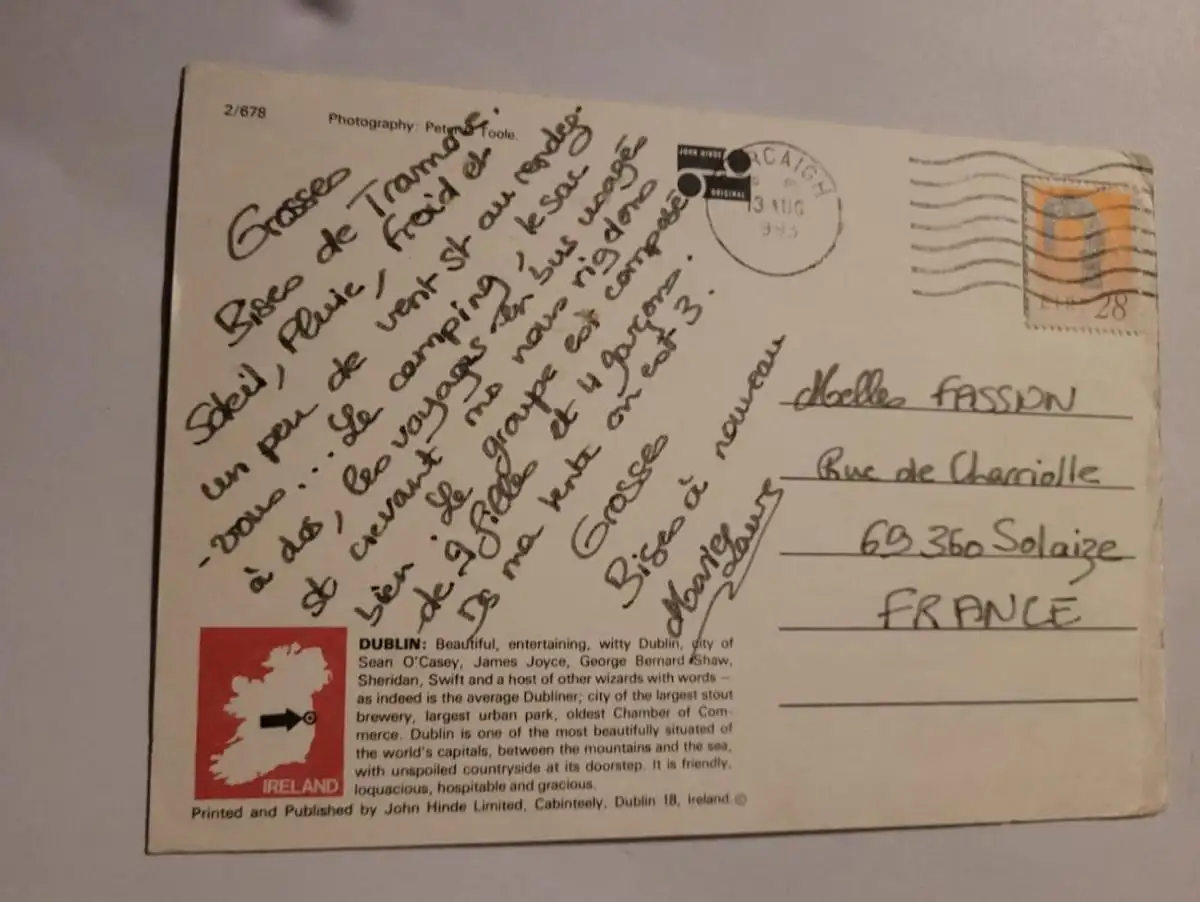 2/678
Photography: Peter O'Toole.
Grosses
Bises de Tramore.
Soleil, Pluie, froid et
un peu de vent st au rendez
-vous... Le camping, le sac
à dos, les voyages en bus usagés
st crevant ms nous rigdons
bien. Le groupe est composé
de 9 filles et 4 garçons.
Ds ma tente on est 3.
Grosses
Bises à nouveau
Marie
Laure
JOHN HINDE
ORIGINAL
RCAIGH
13 AUG
993
28
Melles FASSION
Rue de Charriolle
69360 Solaize
FRANCE
IRELAND
DUBLIN: Beautiful, entertaining, witty Dublin, city of
Sean O'Casey, James Joyce, George Bernard Shaw,
Sheridan, Swift and a host of other wizards with words –
as indeed is the average Dubliner; city of the largest stout
brewery, largest urban park, oldest Chamber of Com-
merce. Dublin is one of the most beautifully situated of
the world's capitals, between the mountains and the sea,
with unspoiled countryside at its doorstep. It is friendly,
loquacious, hospitable and gracious.
Printed and Published by John Hinde Limited, Cabinteely, Dublin 18, Ireland ©